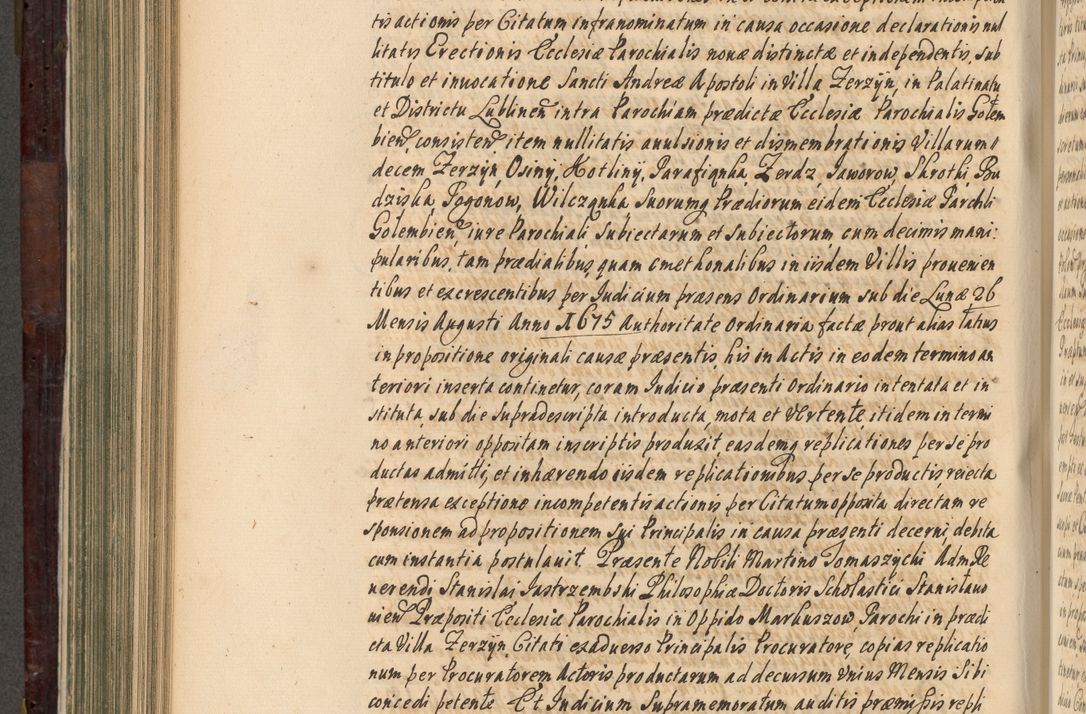 tis actionis per Citatum infranominatum in causa occasione declarationis nul
litatis Erectionis Ecclesiæ Parochialis nouæ distinctæ et independentis, sub
titulo et inuocatione Sancti Andreæ Apostoli in Villa Zerzyn, in Palatinatu
et Districtu Lublinen intra Parochiam prædictæ Ecclesiæ Parochialis Golem
bien consisten, item nullitatis auulsionis et dismembrationis Villarum
decem Zerzyn, Osiny, Kotliny, Parafiqnka, Zerdz, Jaworow, Skrothi, Bu
dziska, Pogonow, Wilczqnka Suorumq Prædiorum eidem Ecclesiæ Parchli
Golembien iure Parochiali Subiectarum et Subiectorum cum decimis mani:
pularibus, tam prædialibus quam cmethonalibus in iisdem Villis prouenien
tibus et excrescentibus per Judicium præsens Ordinarium sub die Lunæ 26
Mensis Augusti Anno 1675 Authoritate Ordinaria factæ prout alias latius
in propositione originali causæ præsentis, his in Actis in eodem termino an
teriori inserta continetur, coram Judicio præsenti Ordinario intentata et in
stituta, sub die supradescripta introducta, mota et vertente, itidem in termi
no anteriori oppositam inscriptis produxit, easdemq replicationes per se pro
ductas admitti, et inhærendo iisdem replicationibus per se productis, reiecta
prætensa exceptione incompetentis actionis per Citatum opposita directam re
sponsionem ad propositionem sui Principalis in causa præsenti decerni, debita
cum instantia postulauit. Præsente Nobili Martino Tomaszycki Adm Re
uerendi Stanislai Jastrzembski Philosophiæ Doctoris Scholastici Stanislauo
uien Præpositi Ecclesiæ Parochialis in Oppido Markuszow, Parochi in prædi
cta Villa Zerzyn Citati exaduerso Principalis Procuratore, copias replicatio
num per Procuratorem Actoris productarum ad decursum Vnius Mensis Sibi
concedi petente. Et Judicium Supramemoratum auditis præmissis repli